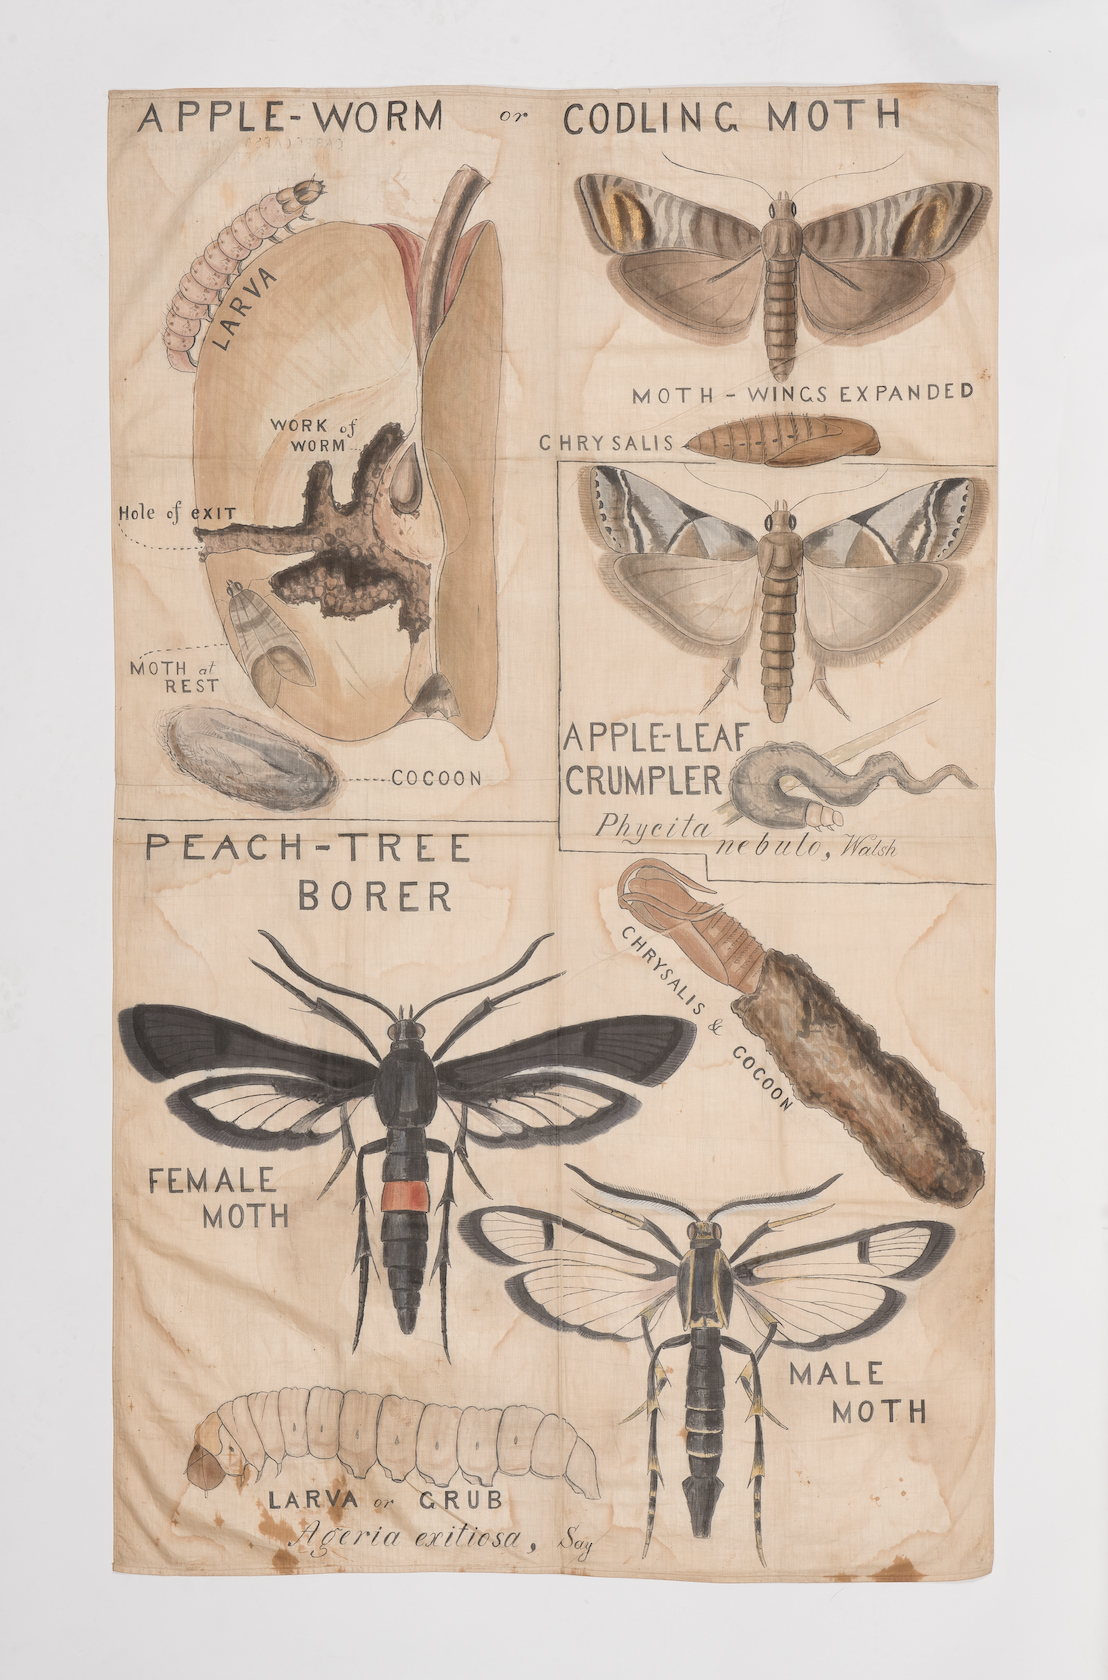 APPLE-WORM or CODLING MOTH
LARVA
WORK of
WORM
Hole of EXIT
MOTH at
REST
COCOON
MOTH - WINGS EXPANDED
CHRYSALIS
APPLE-LEAF
CRUMPLER
Phycita
nebulo, Walsh
PEACH-TREE
BORER
CHRYSALIS & COCOON
FEMALE
MOTH
MALE
MOTH
LARVA or GRUB
Ageria exitiosa, Say